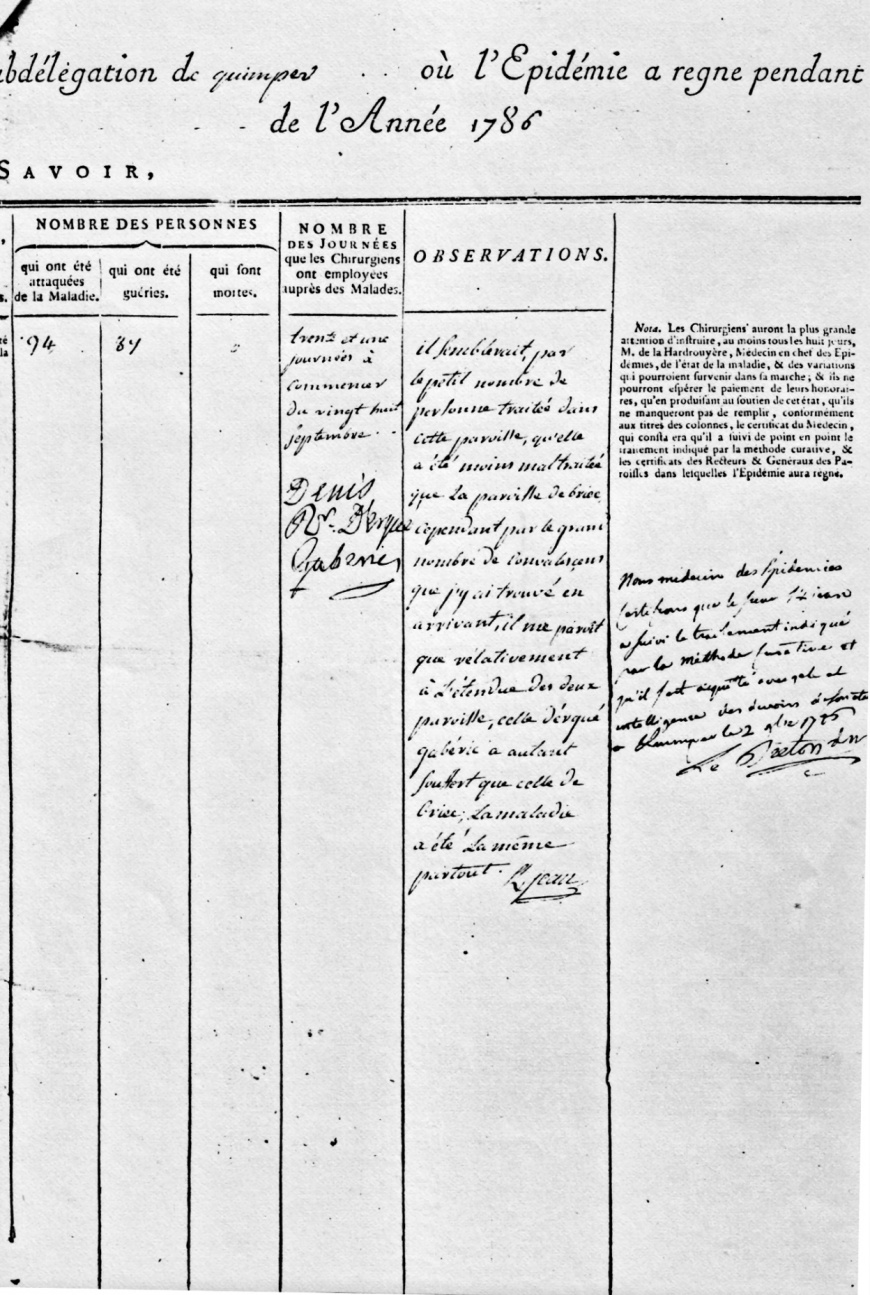 ubdélégation de quimper . . où l'Epidémie a regne pendant
de l'Année 1786
SAVOIR,
NOMBRE DES PERSONNES
qui ont été
attaquées
de la Maladie.
qui ont été
guéries.
qui sont
mortes.
NOMBRE
DES JOURNÉES
que les Chirurgiens
ont employées
auprès des Malades.
OBSERVATIONS.
94
87
trente et une
journées à
commencer
du vingt huit
septembre
Denis
Rr. D'Ergué
Gaberic
il sembleroit, par
le petit nombre de
personne traitée dans
cette paroisse, qu'elle
a été moins maltraitée
que La paroisse de briec,
cependant par le grand
nombre de convalescens
que j'y ai trouvé en
arrivant, il me paroît
que rélativement
à L'étendue des deux
paroisse, celle d'érgué
gabéric a autant
souffert que celle de
briec; La maladie
a été La même
partout.
Nota. Les Chirurgiens auront la plus grande
attention d'instruire, au moins tous les huit jours,
M. de la Hardrouyère, Médecin en chef des Epi-
démies, de l'état de la maladie, & des variations
qui pourroient survenir dans sa marche; & ils ne
pourront espérer le paiement de leurs honorai-
res, qu'en produisant au soutien de cet état, qu'ils
ne manqueront pas de remplir, conformément
aux titres des colonnes, le certificat du Médecin,
qui constatera qu'il a suivi de point en point le
traitement indiqué par la méthode curative, &
les certificats des Recteurs & Généraux des Pa-
roisses dans lesquelles l'Epidémie aura régné.
Nous médecin des Epidémies
Certifions que le sieur
a suivi le traitement indiqué
par la méthode curative et
qu'il s'est acquitté avec zele et
intelligence des devoirs
a Quimper le 2 9bre 1786
Le Breton